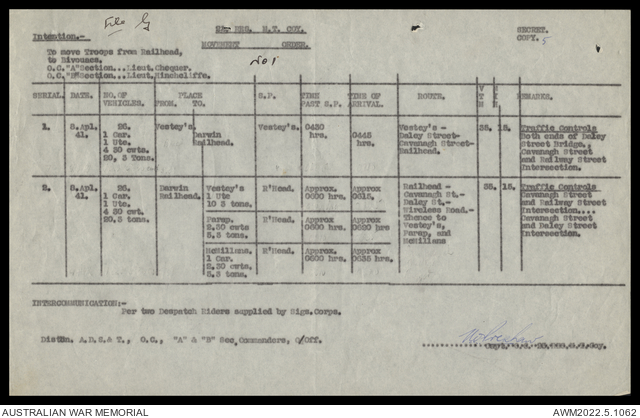 File
RES. M.T. COY.
SECRET.
COPY. 5
Intention.-
MOVEMENT ORDER.
To move Troops from Railhead,
to Bivouacs.
O.C."A"Section...Lieut.Chequer.
O.C."B"Section...Lieut.Hinchcliffe.
SERIAL. DATE. NO.OF VEHICLES. PLACE FROM. TO. S.P. TIME PAST S.P. TIME OF ARRIVAL. ROUTE. REMARKS.
1. 3.Apl. 41. 26. 1 Car. 1 Ute. 4 30 cwts. 20, 3 Tons. Vestey's. Darwin Railhead. Vestey's. 0430 hrs. 0445 hrs. Vestey's - Daley Street- Cavanagh Street- Railhead. 35. 15. Traffic Controls Both ends of Daley Street Bridge, Cavanagh Street and Railway Street Intersection.
2. 3.Apl. 41. 26. 1 Car. 1 Ute. 4 30 cwt. 20.3 tons. Darwin Railhead. Vestey's 1 Ute 10 3 tons. R'Head. Approx 0600 hrs. Approx 0615. Railhead - Cavanagh St.- Daley St.- Wireless Road.- Thence to Vestey's, Parap, and McMillans 35. 15. Traffic Controls Cavanagh Street and Railway Street Intersection.... Cavanagh Street and Daley Street Intersection.
Parap. 2.30 cwts 5.3 tons. R'Head. Approx 0600 hrs. Approx 0600 hrs
McMillans. 1 Car. 2.30 cwts. 5.3 tons. R'Head. Approx 0600 hrs. Approx 0635 hrs.
INTERCOMMUNICATION:-
Per two Despatch Riders supplied by Sigs.Corps.
Distbn. A.D.S.& T., O.C., "A" & "B" Sec Commanders, O/Off.
AUSTRALIAN WAR MEMORIAL
AWM2022.5.1062